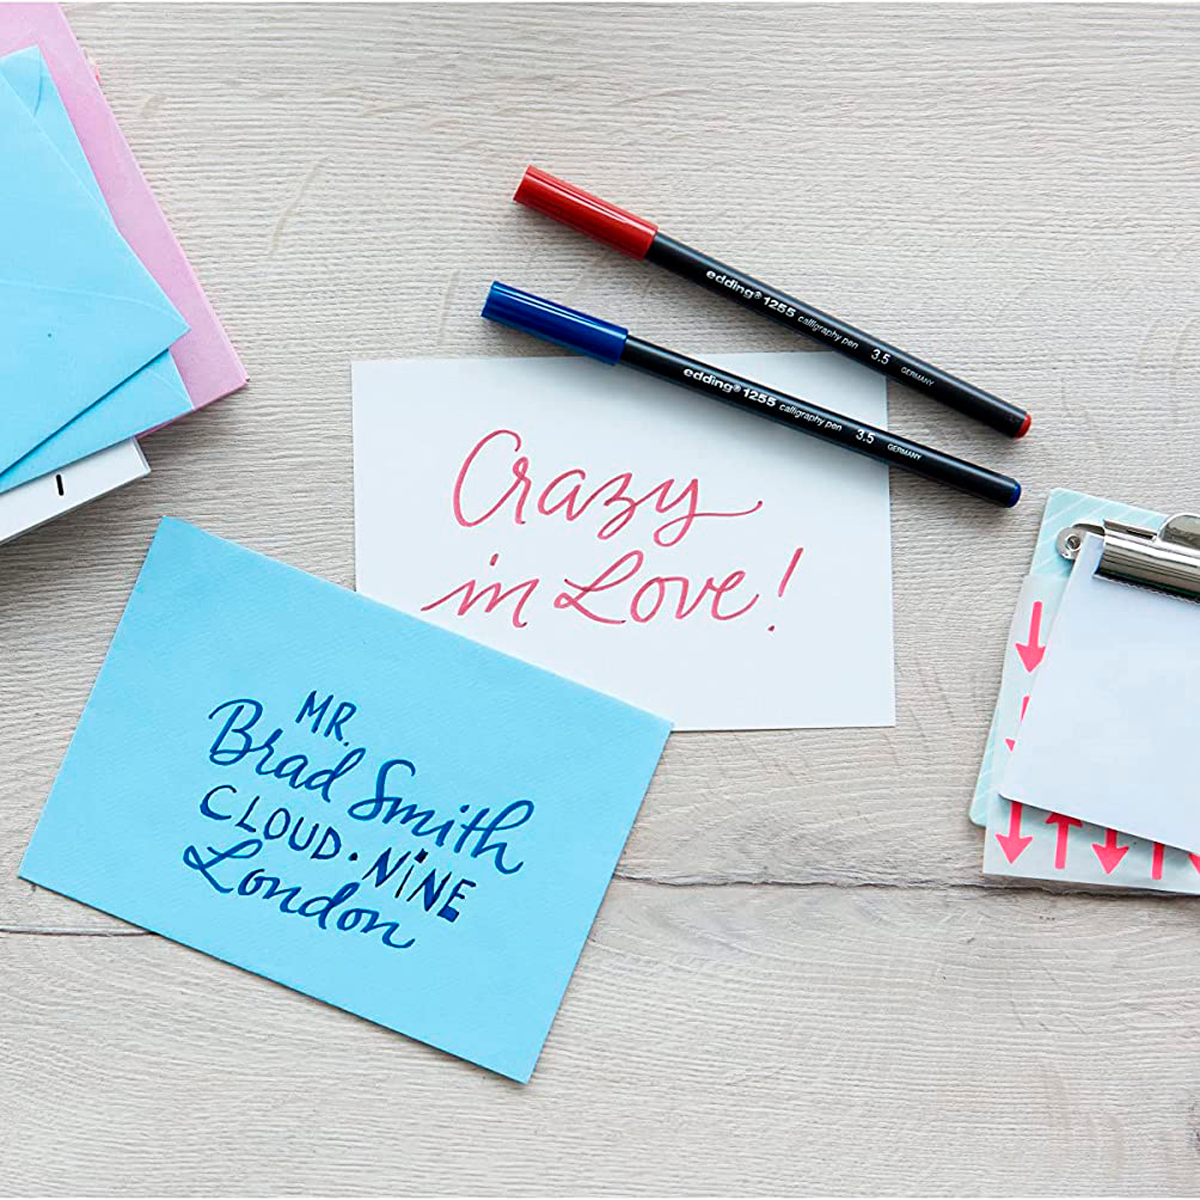 edding® 1255 calligraphy pen 3.5 GERMANY
edding® 1255 calligraphy pen 3.5 GERMANY
Crazy
in Love!
MR.
Brad Smith
CLOUD·NiNE
London